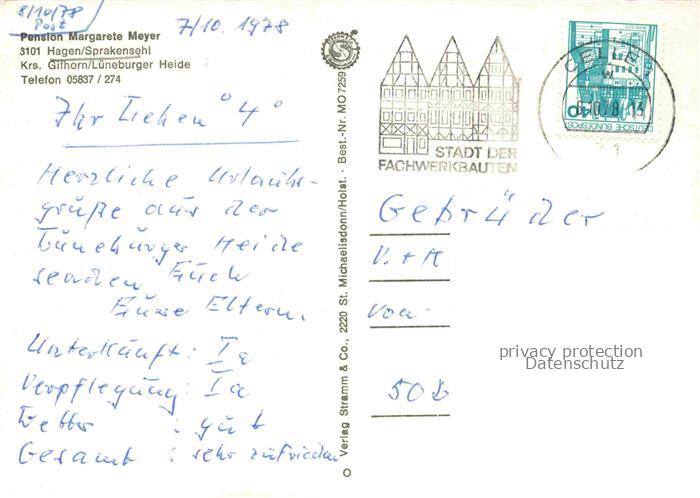 8/10/78
Post
Pension Margarete Meyer
3101 Hagen/Sprakensehl
Krs. Gifhorn/Lüneburger Heide
Telefon 05837 / 274
7/10. 1978
Ihr Lieben °4°
Herzliche Urlaubs-
grüße aus der
Lüneburger Heide
senden Euch
Eure Eltern.
Unterkunft: Ia
Verpflegung: Ia
Wetter : gut
Gesamt : sehr zufrieden
Verlag Stramm & Co., 2220 St. Michaelisdonn/Holst. · Best.-Nr. MO 7289
STADT DER
FACHWERKBAUTEN
CELLE
DEUTSCHE BUNDESPOST
40
Gebrüder
V. + K
von
50
privacy protection
Datenschutz